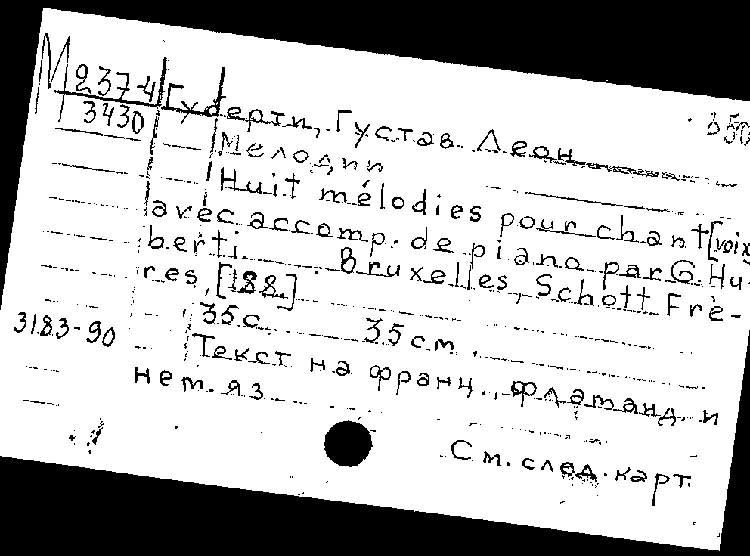 М 237-4
3430
Губерти, Густав Леон
Мелодии
Huit mélodies pour chant [voix
avec accomp. de piano par G. Hu-
berti. Bruxelles, Schott Frè-
res, [188.]
35 с. 35 cm.
3183-90
Текст на франц., фламанд. и
нем. яз.
См. след. карт.